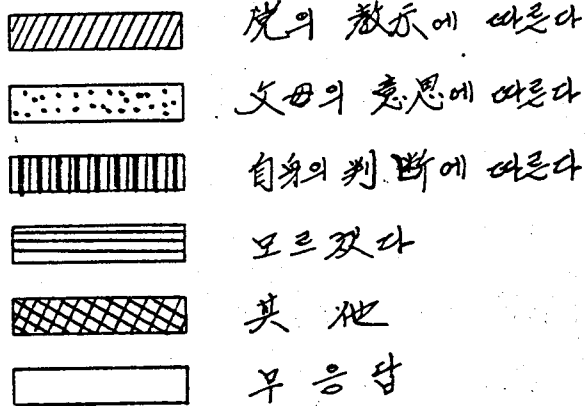 党의 敎示에 따른다
父母의 意思에 따른다
自身의 判断에 따른다
모르겠다
其他
무응답